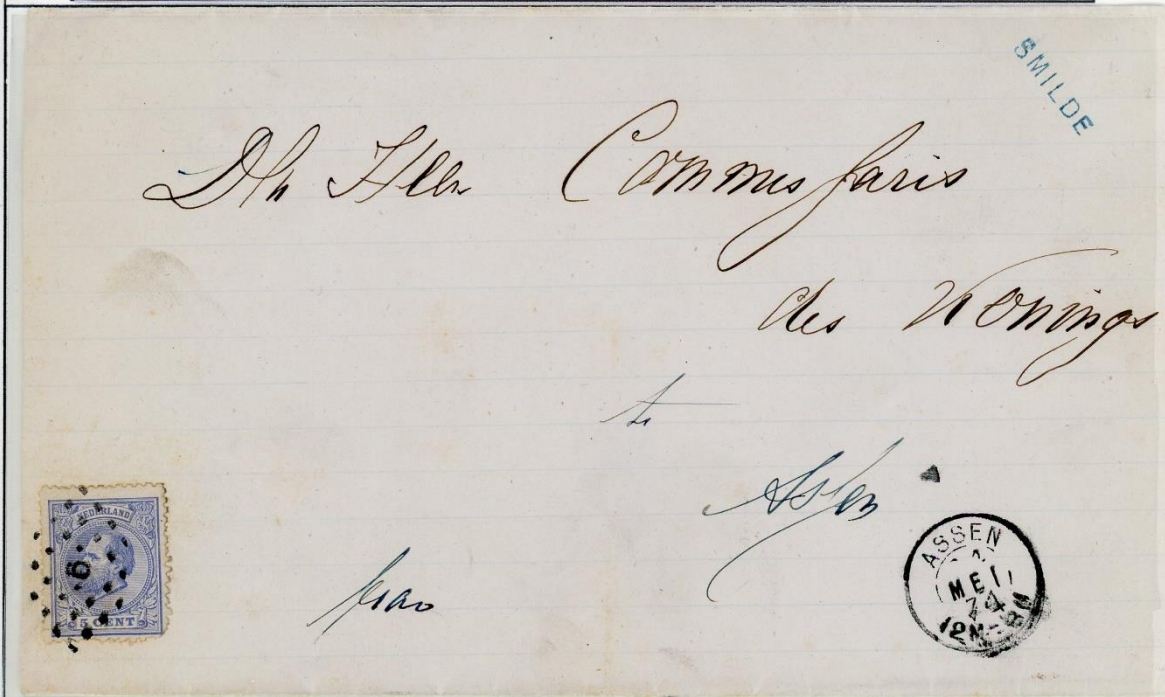 SMILDE
Commissaris
des Konings
te
Assen
NEDERLAND
6
5 CENT
ASSEN
MEI
74
12M-8N